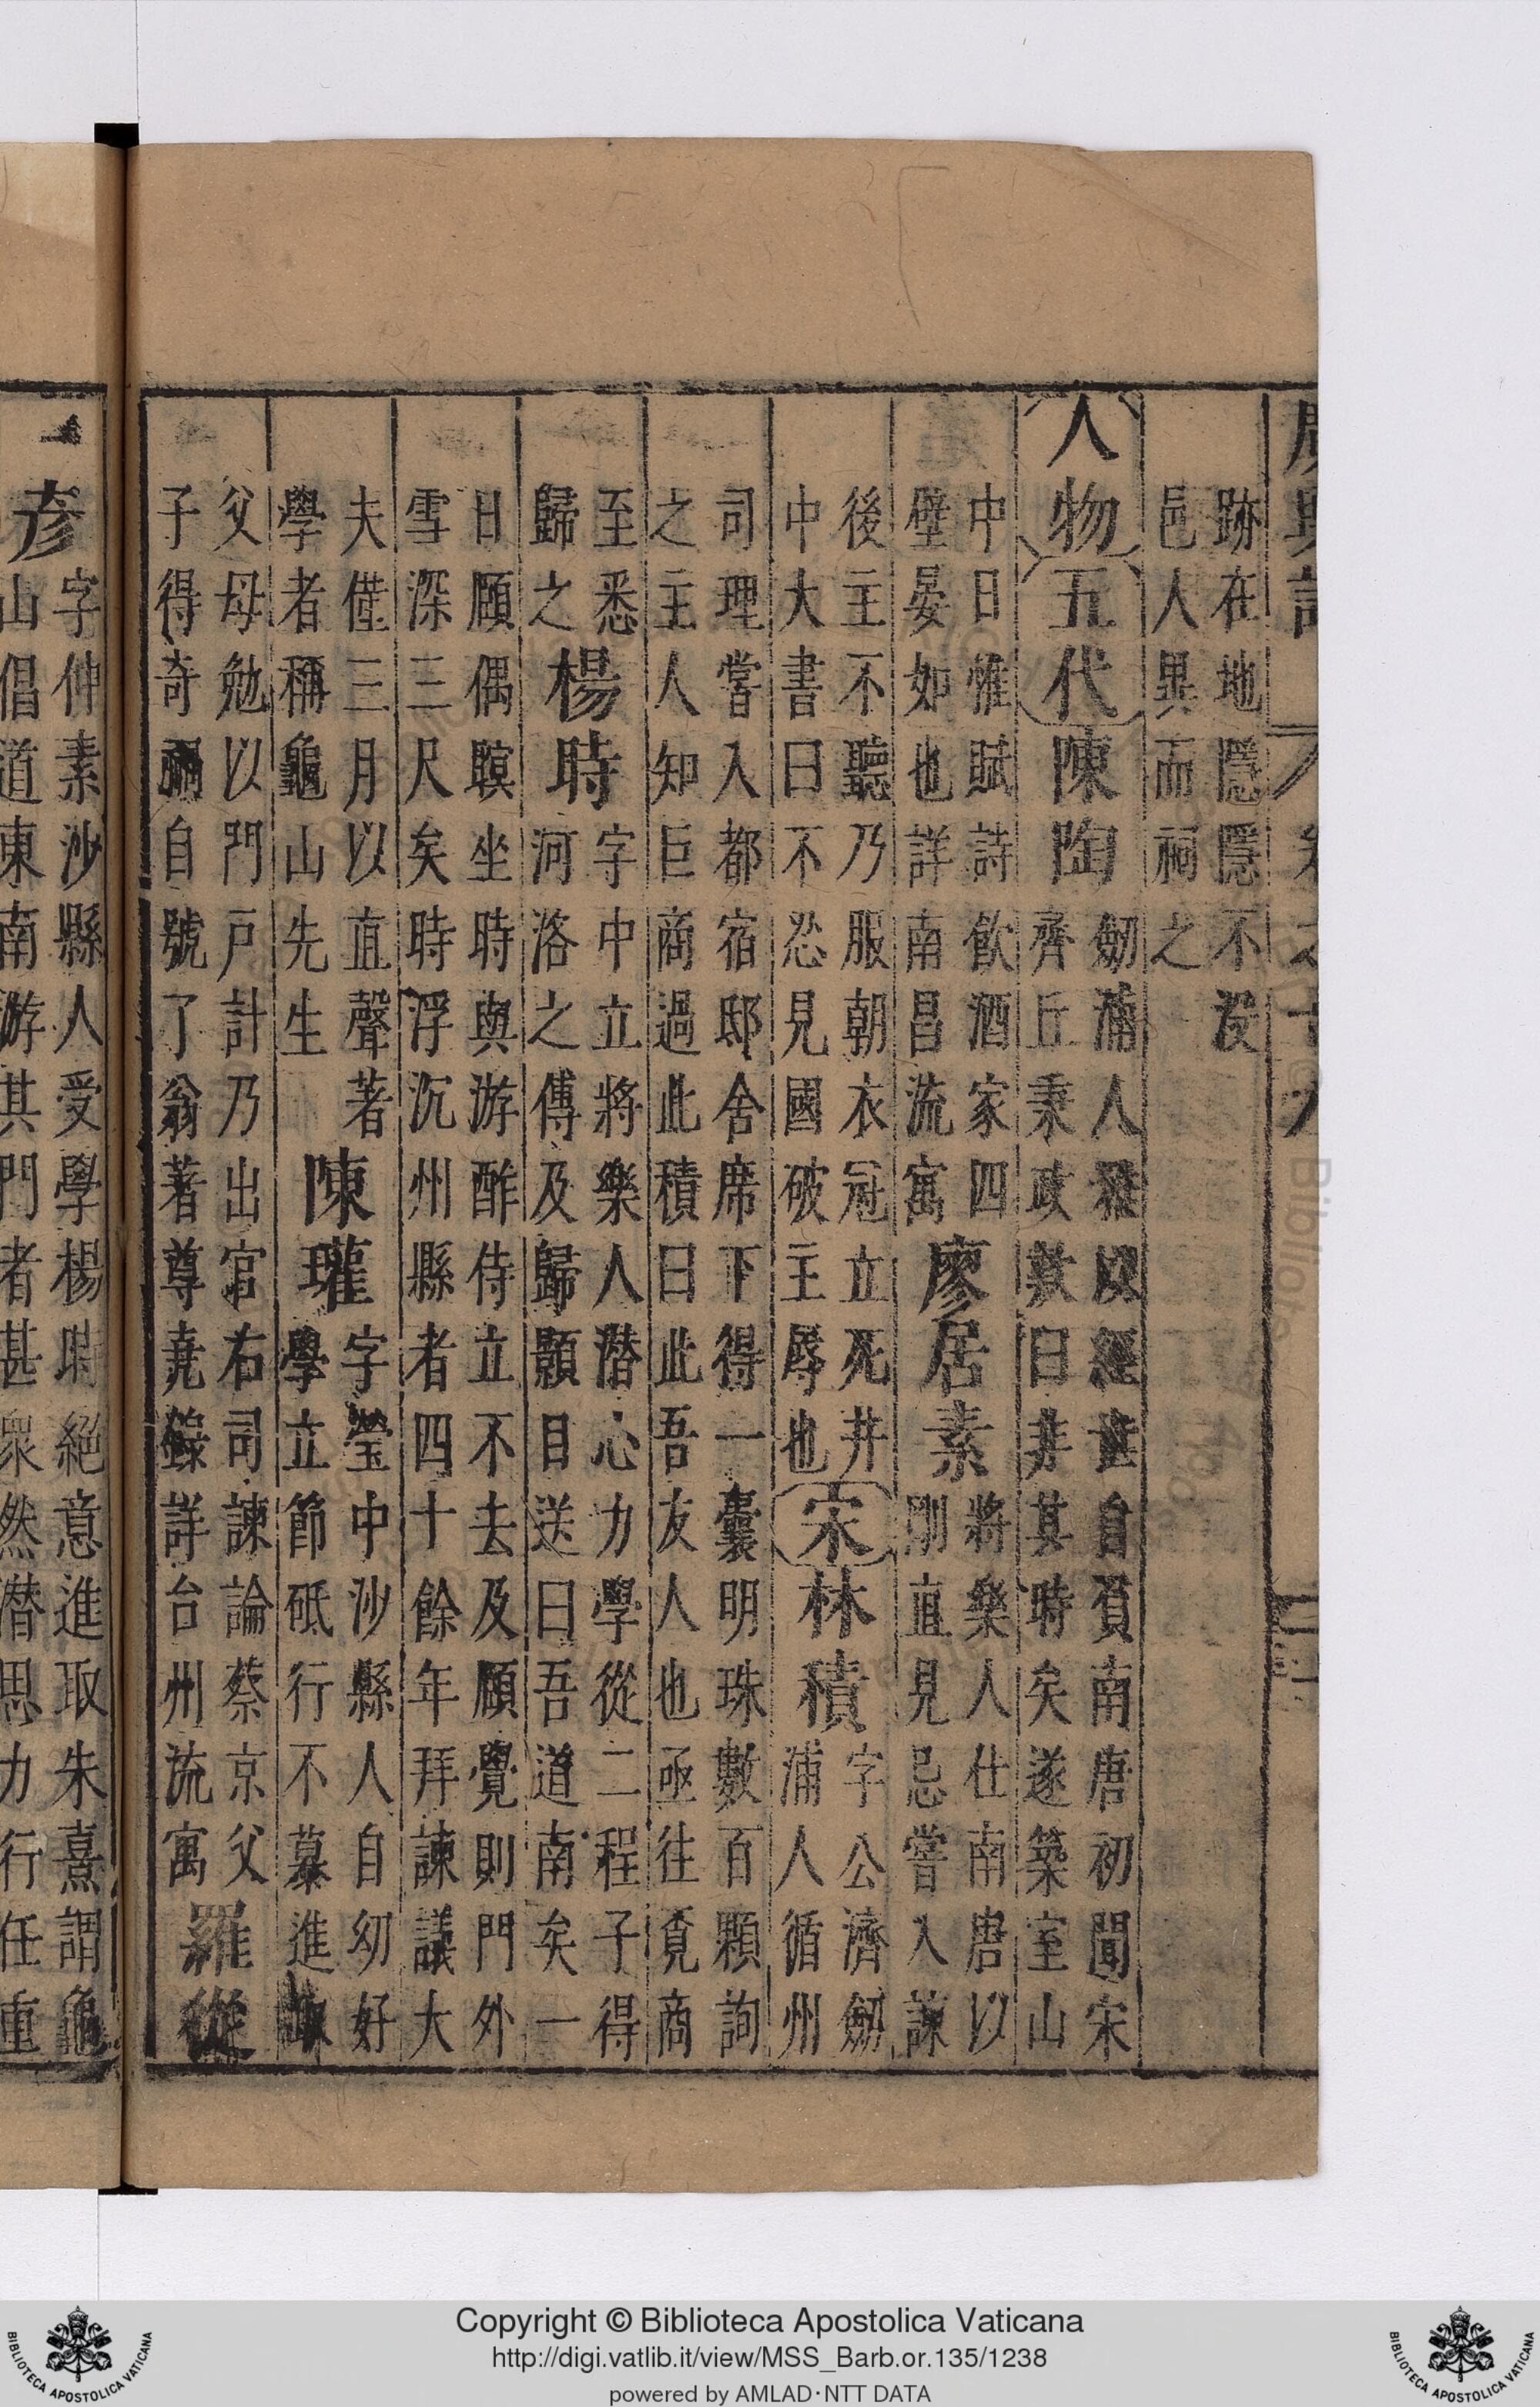 廣輿記 卷之十
跡在地隱隱不沒
邑人異而祠之
人物 五代 陳陶
劒浦人雅以經世自負南唐初聞宋
齊丘秉政歎曰非其時矣遂築室山
中日惟賦詩飲酒家四
壁晏如也詳南昌流寓
廖居素
將樂人仕南唐以
剛直見忌嘗入諫
後主不聽乃服朝衣冠立死井
中大書曰不忍見國破主辱也
宋 林積
字公濟劒
浦人循州
司理嘗入都宿邸舍席下得一囊明珠數百顆詢
之主人知巨商過此積曰此吾友人也亟往覓商
至悉
歸之
楊時
字中立將樂人潜心力學從二程子得
河洛之傳及歸顥目送曰吾道南矣一
日頤偶瞑坐時與游酢侍立不去及頤覺則門外
雪深三尺矣時浮沉州縣者四十餘年拜諫議大
夫僅三月以直聲著
學者稱龜山先生
陳瓘
字瑩中沙縣人自幼好
學立節砥行不慕進取
父母勉以門戸計乃出官右司諫論蔡京父
子得奇禍自號了翁著尊堯錄詳台州流寓
羅從
彥
字仲素沙縣人受學楊時絕意進取朱熹謂龜
山倡道東南游其門者甚衆然潜思力行任重
Copyright © Biblioteca Apostolica Vaticana
http://digi.vatlib.it/view/MSS_Barb.or.135/1238
powered by AMLAD·NTT DATA
BIBLIOTECA APOSTOLICA VATICANA
BIBLIOTECA APOSTOLICA VATICANA